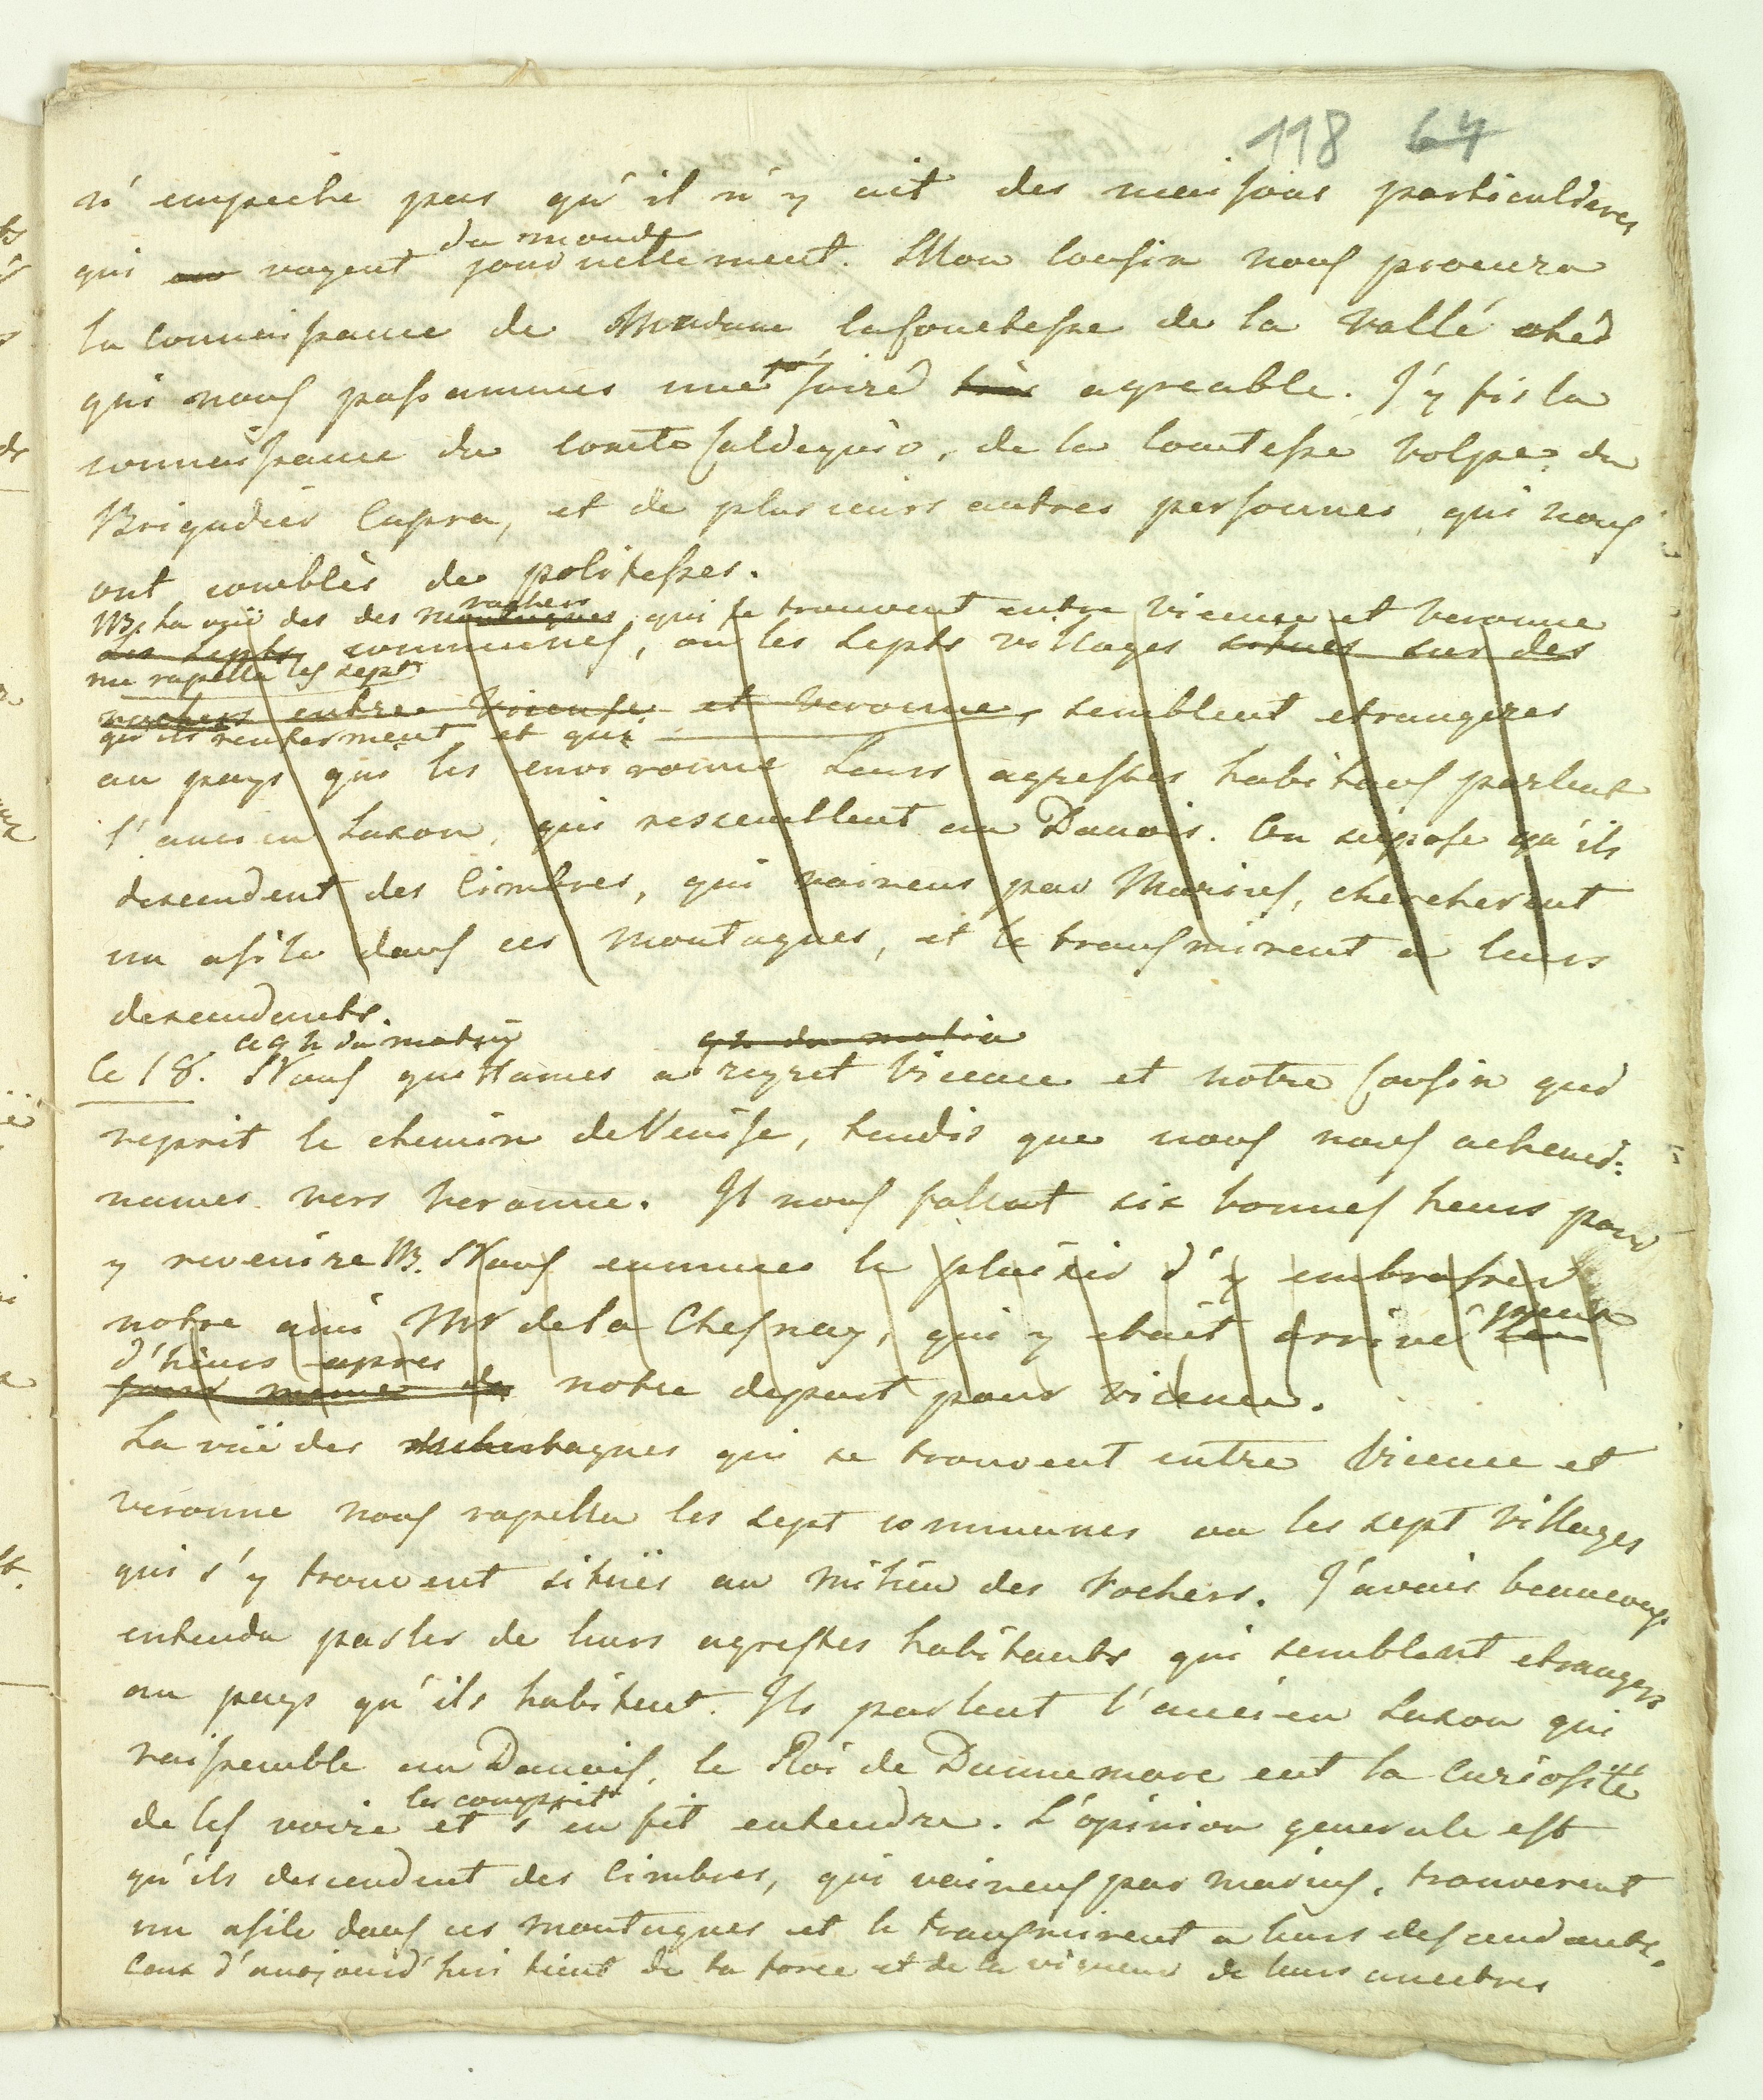 118 64
n'empeche pas qu'il n'y ait des maisons particulieres
du monde
qui voyent journellement. Mon Cousin nous procura
la connaissance de Madame la Contesse de la Vallé chés
qui nous passammes une soiré très agreable. J'y fis la
connaissance du Comte Saldeguio, de la Comtesse Volpe, du
Brigadier Capra, et de plusieurs autres personnes, qui nous
ont comblès de politesses.
rochers
NB. La vüe des des montagnes qui se trouvent entre Vicence et Veronne
Les Septs communes, ou les Septs villages situés sur des
me rapella les sept
rochers entre Vicense et Veronne, semblent etrangeres
qu'ils renferment et qui
au pays qui les environne Leurs agrestes habitans parlent
l'ancien Saxon, qui ressemblent au Danois. On supose qu'ils
descendent des Cimbres, qui vaincus par Marius, chercherent
un asile dans ces Montagnes, et le transmirent a leurs
descendents.
a 9 h du matin 9 h du matin
Ce 18. Nous quittames a regret Vicence et notre Cousin qui
reprit le chemin de Venise, tandis que nous nous achemi=
names vers Veronne. Il nous fallut six bonnes heurs pour
y revenire NB. Nous eummes le plaisir d'y embrasser
notre ami Mr de la Chesnay, qui y etait arrivé peux
d'heurs apres
jour meme de notre depart pour Vicence.
La vüe des montagnes qui se trouvent entre Vicence et
Veronne nous rapella les sept communes ou les sept Villages
qui s'y trouvent sitüés au milieu des Rochers. J'avais beaucoup
entendu parler de leurs agrestes habitants qui semblent etrangers
au pays qu'ils habitent. Ils parlent l'ancien Saxon qui
raissemble au Danois, le Roi de Dannemarc eut la Curiosité
les comprit
de les voire et s'en fit entendre. L'opinion generale est
qu'ils descendent des Cimbres, qui vaincus par Marius, trouverent
un asile dans ces Montagnes et le transmirent a leurs descendants.
Ceux d'aujourd'hui tient de la force et de la vigueur de leurs ancetres